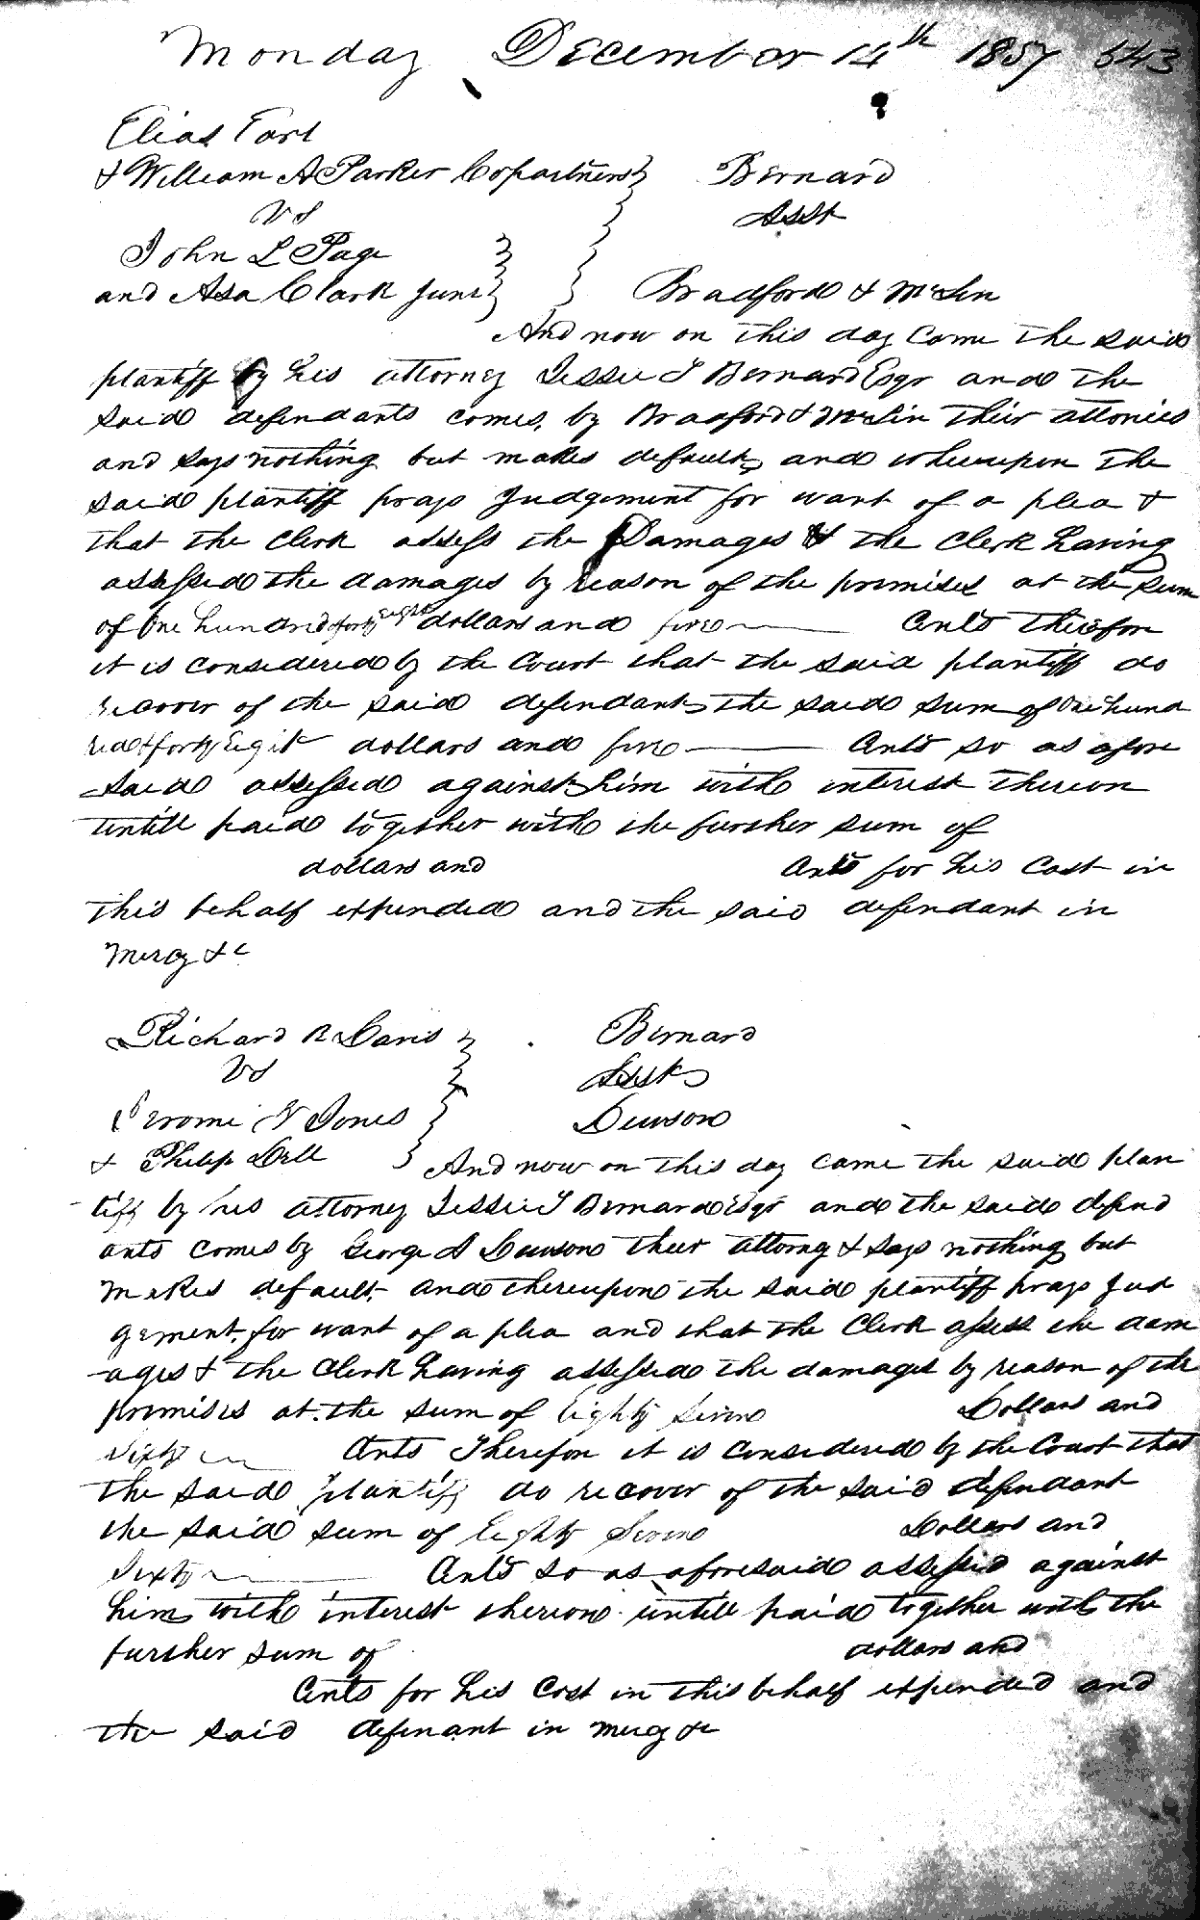 Monday December 14th 1857 543
Elias Earl
& William A Parker Copartners Bernard
Vs Asst
John L Page
and Asa Clark Junr Bradford & McLin
And now on this day came the said
plantiff by his attorney Jessie T Bernard Esqr and the
said defendants comes, by Bradford & McLin their attonies
and says nothing but makes default, and whereupon the
said plantiff prays Judgement for want of a plea &
that the Clerk assess the Damages & the Clerk having
assessed the damages by reason of the premises at the sum
of One hundred forty eight dollars and five Cents Therefore
it is considered by the Court that the said plantiff do
recover of the said defendants the said sum of One hund
red & forty Eigit dollars and five Cents so as afore
said assessed against him with interest thereon
untill paid together with the further sum of
dollars and Cents for his Cost in
this behalf expended and the said defendant in
Mercy &c
Richard R Davis Bernard
Vs Asst
Jerome N Jones Dawson
& Philip Dell And now on this day came the said plan
tiff by his attorney Jessie T Bernard Esqr and the said defend
ants comes by George S Dawson their attorny & says nothing but
makes default and thereupon the said plantiff prays Jud
gement, for want of a plea and that the Clerk assess the dam
ages & the Clerk having assessed the damages by reason of the
premises at the sum of Eighty Seven Dollars and
Sixty Cents Therefore it is considered by the Court that
the said plantiff do recover of the said defendant
the said sum of Eighty Seven Dollars and
Sixty Cents so as aforesaid assessed against
him with interest thereon untill paid together with the
further sum of dollars and
Cents for his Cost in this behalf expended and
the said defenant in mercy &c